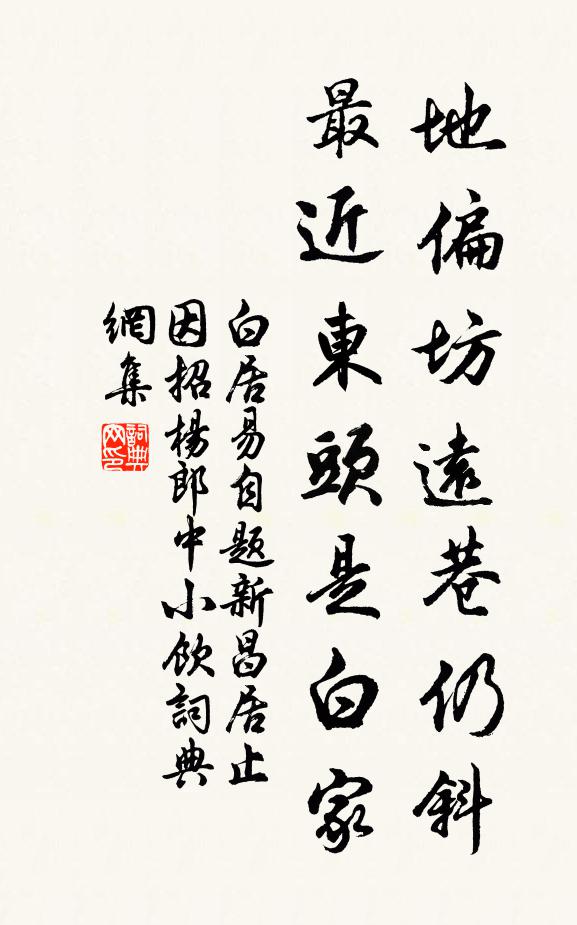 地偏坊遠巷仍斜
最近東頭是白家
白居易自题新昌居止
因招楊郎中小飲詞典
網集
詞典
网印